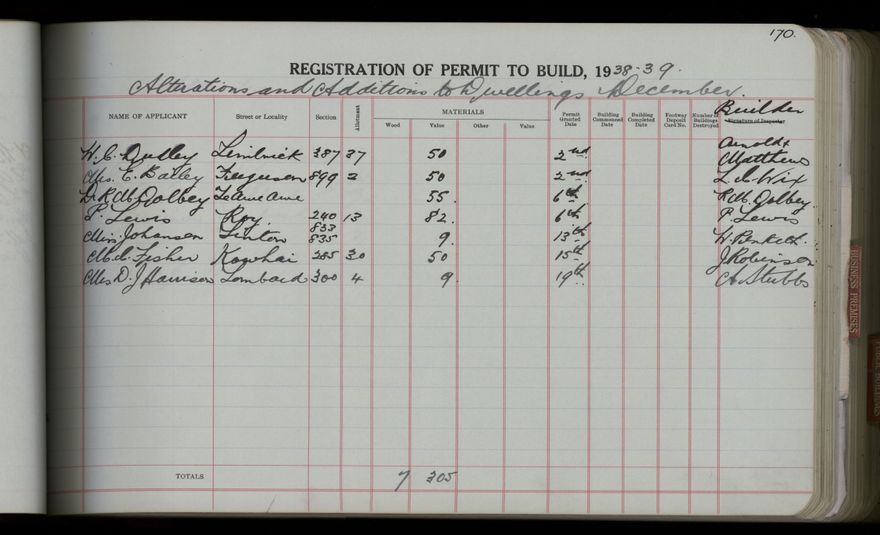 170.
REGISTRATION OF PERMIT TO BUILD, 1938-39.
Alterations and Additions to Dwellings December.
NAME OF APPLICANT Street or Locality Section Allotment MATERIALS Wood Value Other Value Permit Granted Date Building Commenced Date Building Completed Date Footway Deposit Card No. Number of Buildings Destroyed Builder Signature of Inspector
W. C. Dudley Limbrick 387 37 50 2nd Arnold & Matthews
Mrs. E. Bailey Ferguson 899 2 50 2nd L. I. Wix
Dr R M Dolbey Te Awe Awe 55. 6th R M. Dolbey
P. Lewis Roy 240 13 82. 6th P. Lewis
Miss Johansen Linton 833 835 9. 13th W. Penketh.
M. A. Fisher Kowhai 285 30 50 15th J Robinson
Mrs D. J Harrison Lombard 300 4 9. 19th A Stubbs
TOTALS 7 305
BUSINESS PREMISES